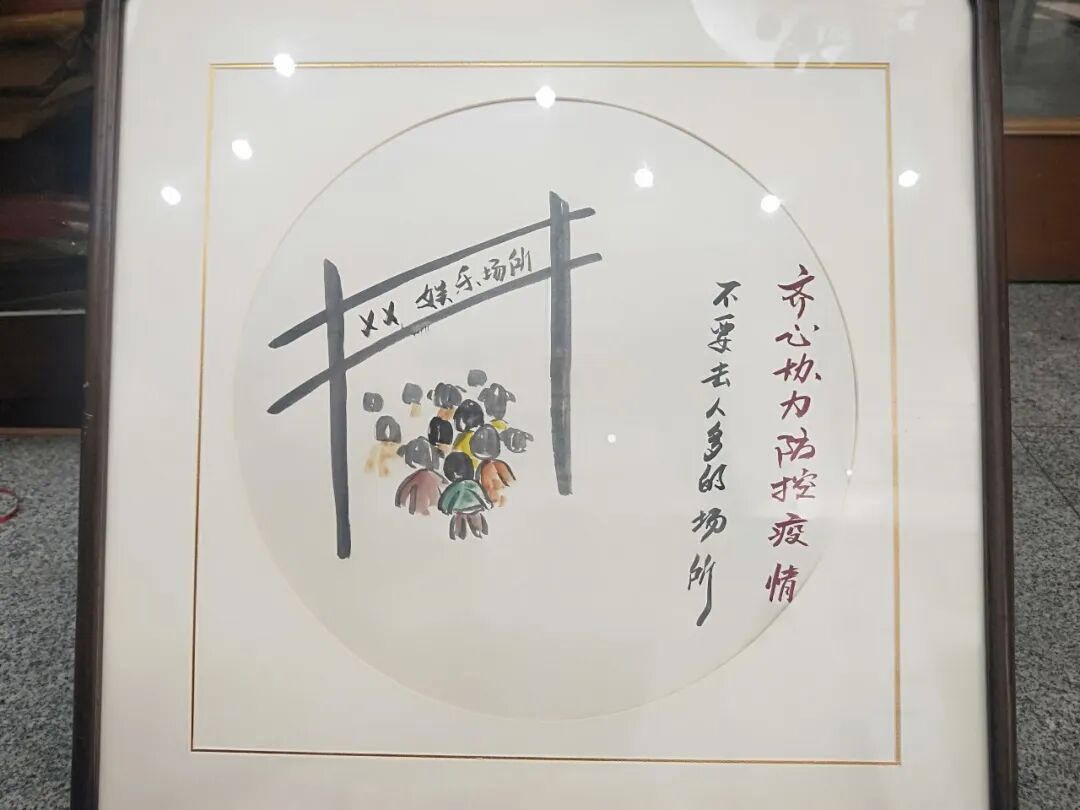 齐心协力防控疫情
不要去人多的场所
XX 娱乐场所